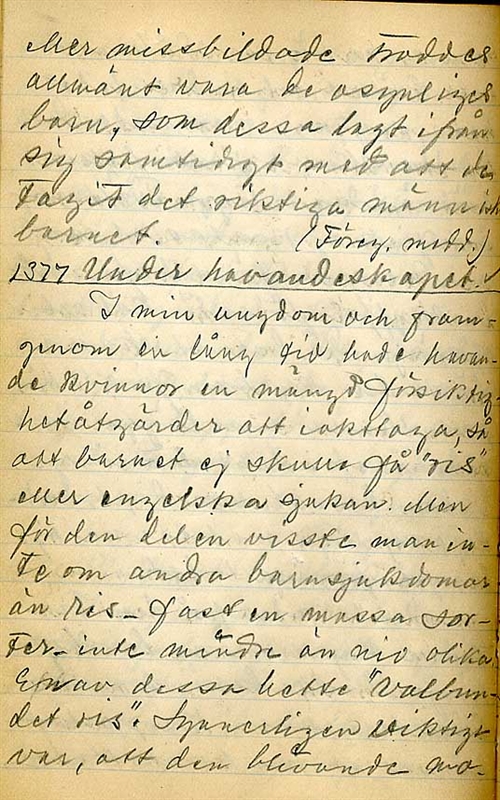 eller missbildade troddes
allmänt vara de osynligas
barn, som dessa lagt ifrån
sig samtidigt med att de
tagit det riktiga människ
barnet. (Föreg. medd.)
1377 Under havandeskapet.
I min ungdom och fram-
genom en lång tid hade havan-
de kvinnor en mängd försiktig-
hetåtgärder att iakttaga, så
att barnet ej skulle få "ris"
eller engelska sjukan. Men
för den delen visste man in-
te om andra barnsjukdomar
än ris - fast en massa sor-
ter - inte mindre än nio olika
En av dessa hette "Valbun-
det ris". Synnerligen viktigt
var, att den blivande mo-